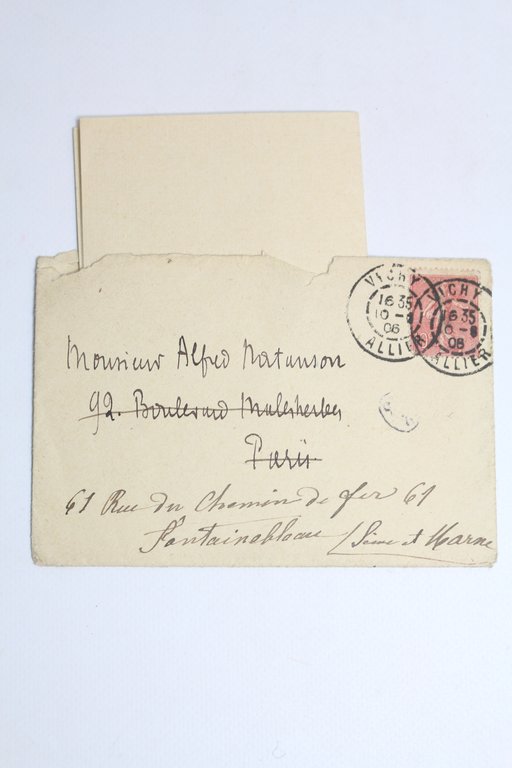 VICHY
16 35
10 - 8
06
ALLIER
VICHY
16 35
0 - 8
06
ALLIER
Monsieur Alfred Natanson
92. Boulevard Malesherbes
Paris
61 Rue du Chemin de fer 61
Fontainebleau (Seine et Marne